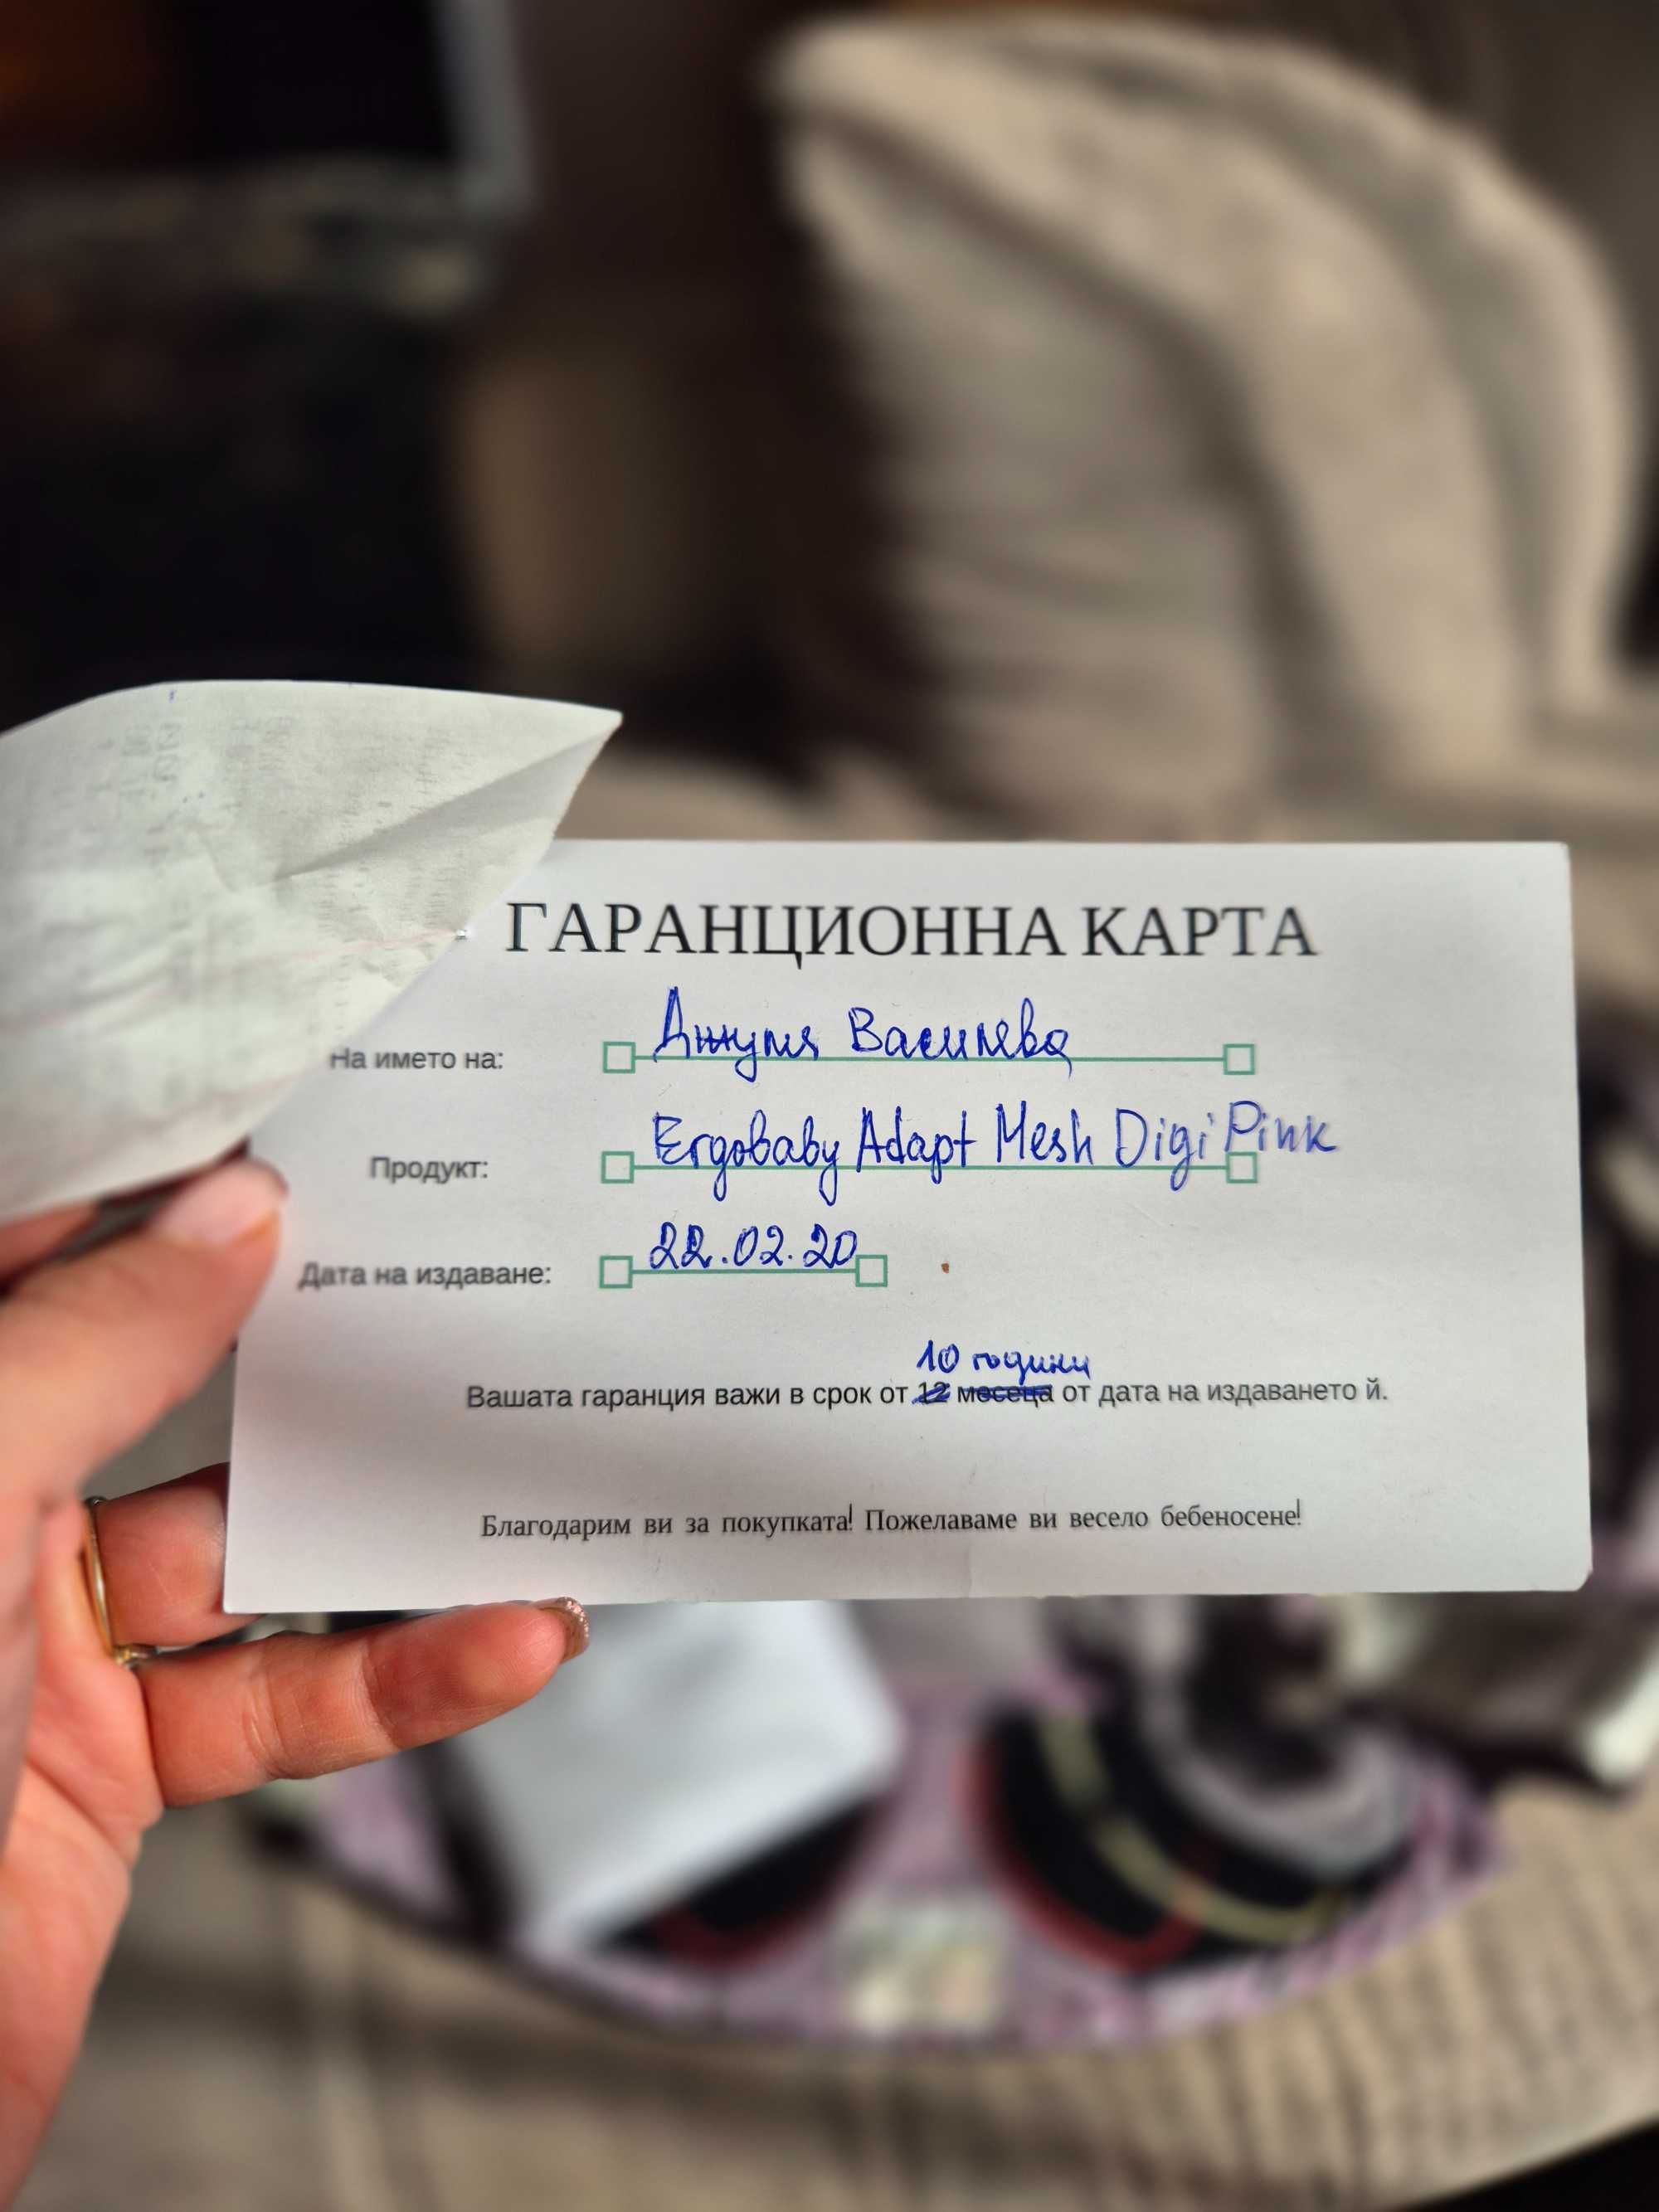 ГАРАНЦИОННА КАРТА
На името на: Джулия Василева
Продукт: Ergobaby Adapt Mesh Digi Pink
Дата на издаване: 22.02.20
10 години
Вашата гаранция важи в срок от 12 месеца от дата на издаването й.
Благодарим ви за покупката! Пожелаваме ви весело бебеносене!